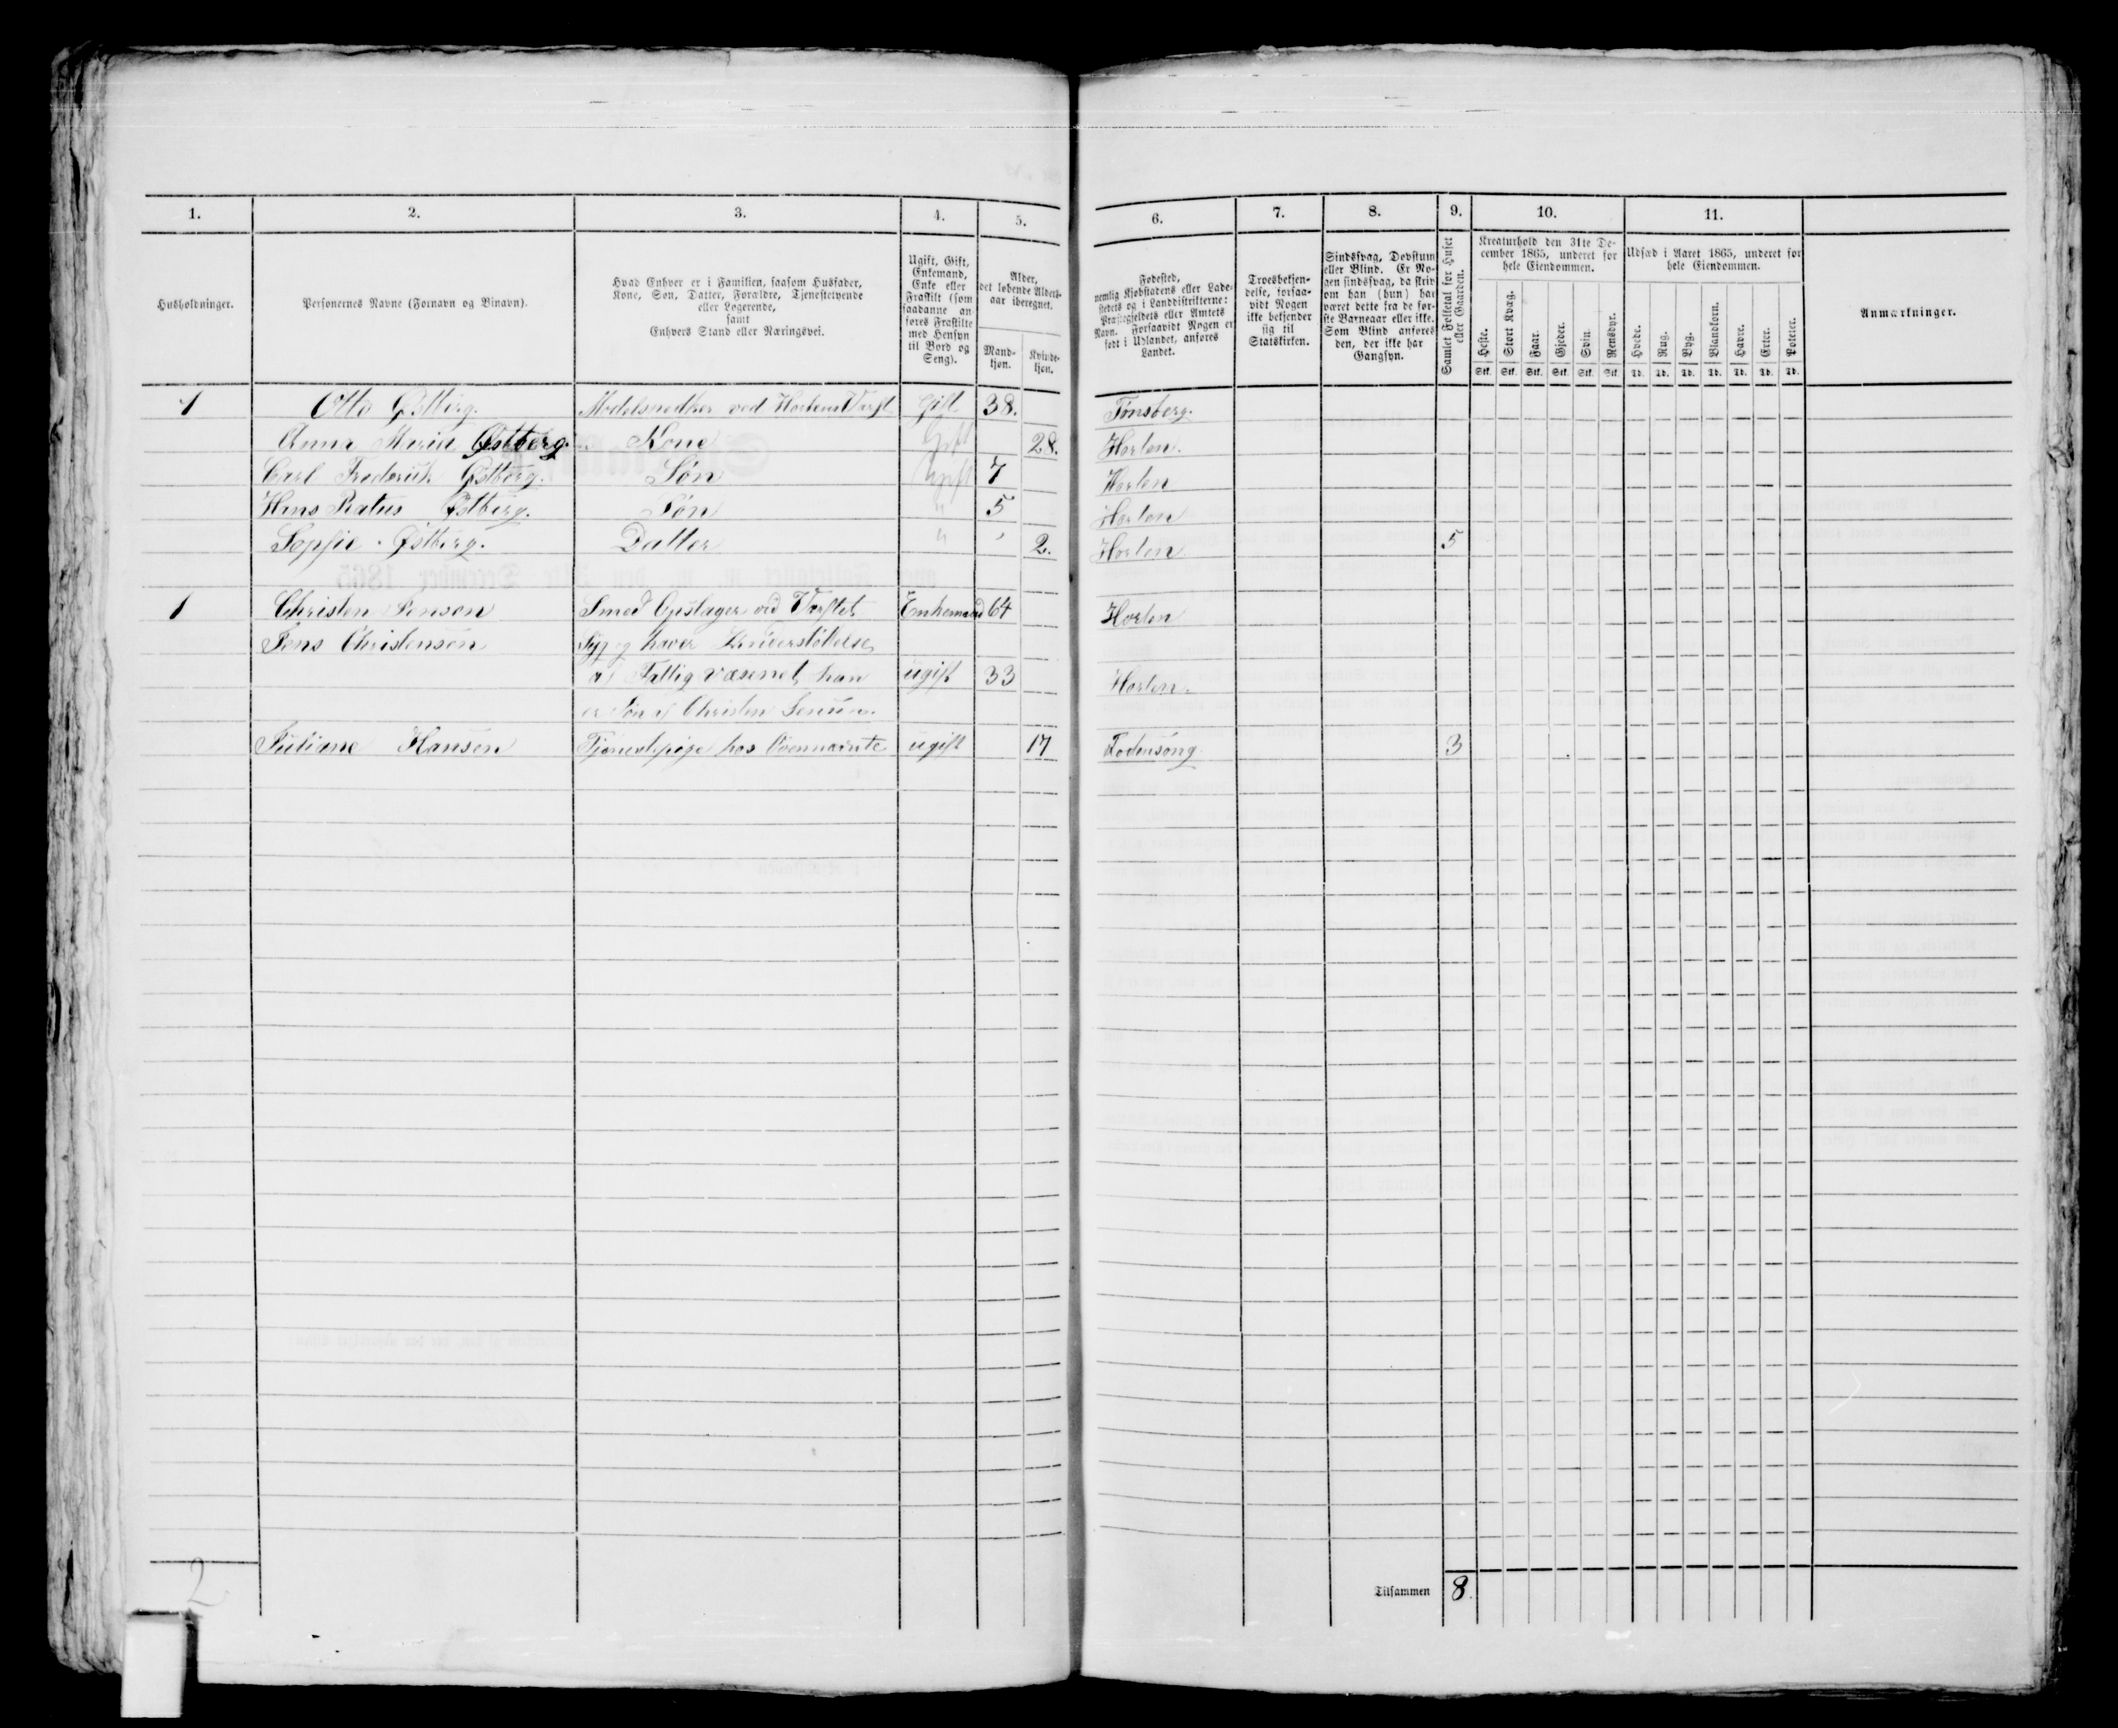 1. 2. 3. 4. 5. 6. 7. 8. 9. 10. 11.
Husholdninger.
Personernes Navne (Fornavn og Binavn).
Hvad Enhver er i Familien, saasom Husfader,
Kone, Søn, Datter, Forældre, Tjenestetyende
eller Logerende,
samt
Enhvers Stand eller Næringsvei.
Ugift, Gift,
Enkemand,
Enke eller
Fraskilt (som
saadanne an-
føres Fraskilte
med Hensyn
til Bord og
Seng).
Alder,
det løbende Alders-
aar iberegnet.
Mand-
kjøn.
Kvinde-
kjøn.
Fødested,
nemlig Kjøbstadens eller Lade-
stedets og i Landdistrikterne:
Præstegjeldets eller Amtets
Navn. Forsaavidt Nogen er
født i Udlandet, anføres
Landet.
Troesbekjen-
delse, forsaa-
vidt Nogen
ikke bekjender
sig til
Statskirken.
Sindssvag, Døvstum
eller Blind. Er No-
gen sindssvag, da skriv
om han (hun) har
været dette fra de før-
ste Barneaar eller ikke.
Som Blind anføres
den, der ikke har
Gangsyn.
Samlet Folketal for Huset
eller Gaarden.
Kreaturhold den 31te De-
cember 1865, underet for
hele Eiendommen.
Heste. Stort Kvæg. Faar. Gjeder. Svin. Rensdyr.
Stk. Stk. Stk. Stk. Stk. Stk.
Udsæd i Aaret 1865, underet for
hele Eiendommen.
Hvede. Rug. Byg. Blandkorn. Havre. Erter. Poteter.
Td. Td. Td. Td. Td. Td. Td.
Anmærkninger.
1 Otto Østberg. Modelsnedker ved Hortens Værft Gift 38. Tønsberg.
Anna Maria Østberg. Kone Gift 28. Horten.
Carl Frederik Østberg. Søn Ugift 7 Horten
Hans Østberg. Søn " 5 Horten
Sophie Østberg. Datter " 2. Horten 5
1 Christen Jenson Smed Opslager ved Værftet Enkemand 64 Horten
Jens Christensen Syg og haver Understøtelse
af Fattig væsenet, han ugift 33 Horten.
er Søn af Christen Jensen.
Juliane Hansen Tjenestepige hos Ovennævnte ugift 17 3
2
Tilsammen 8.